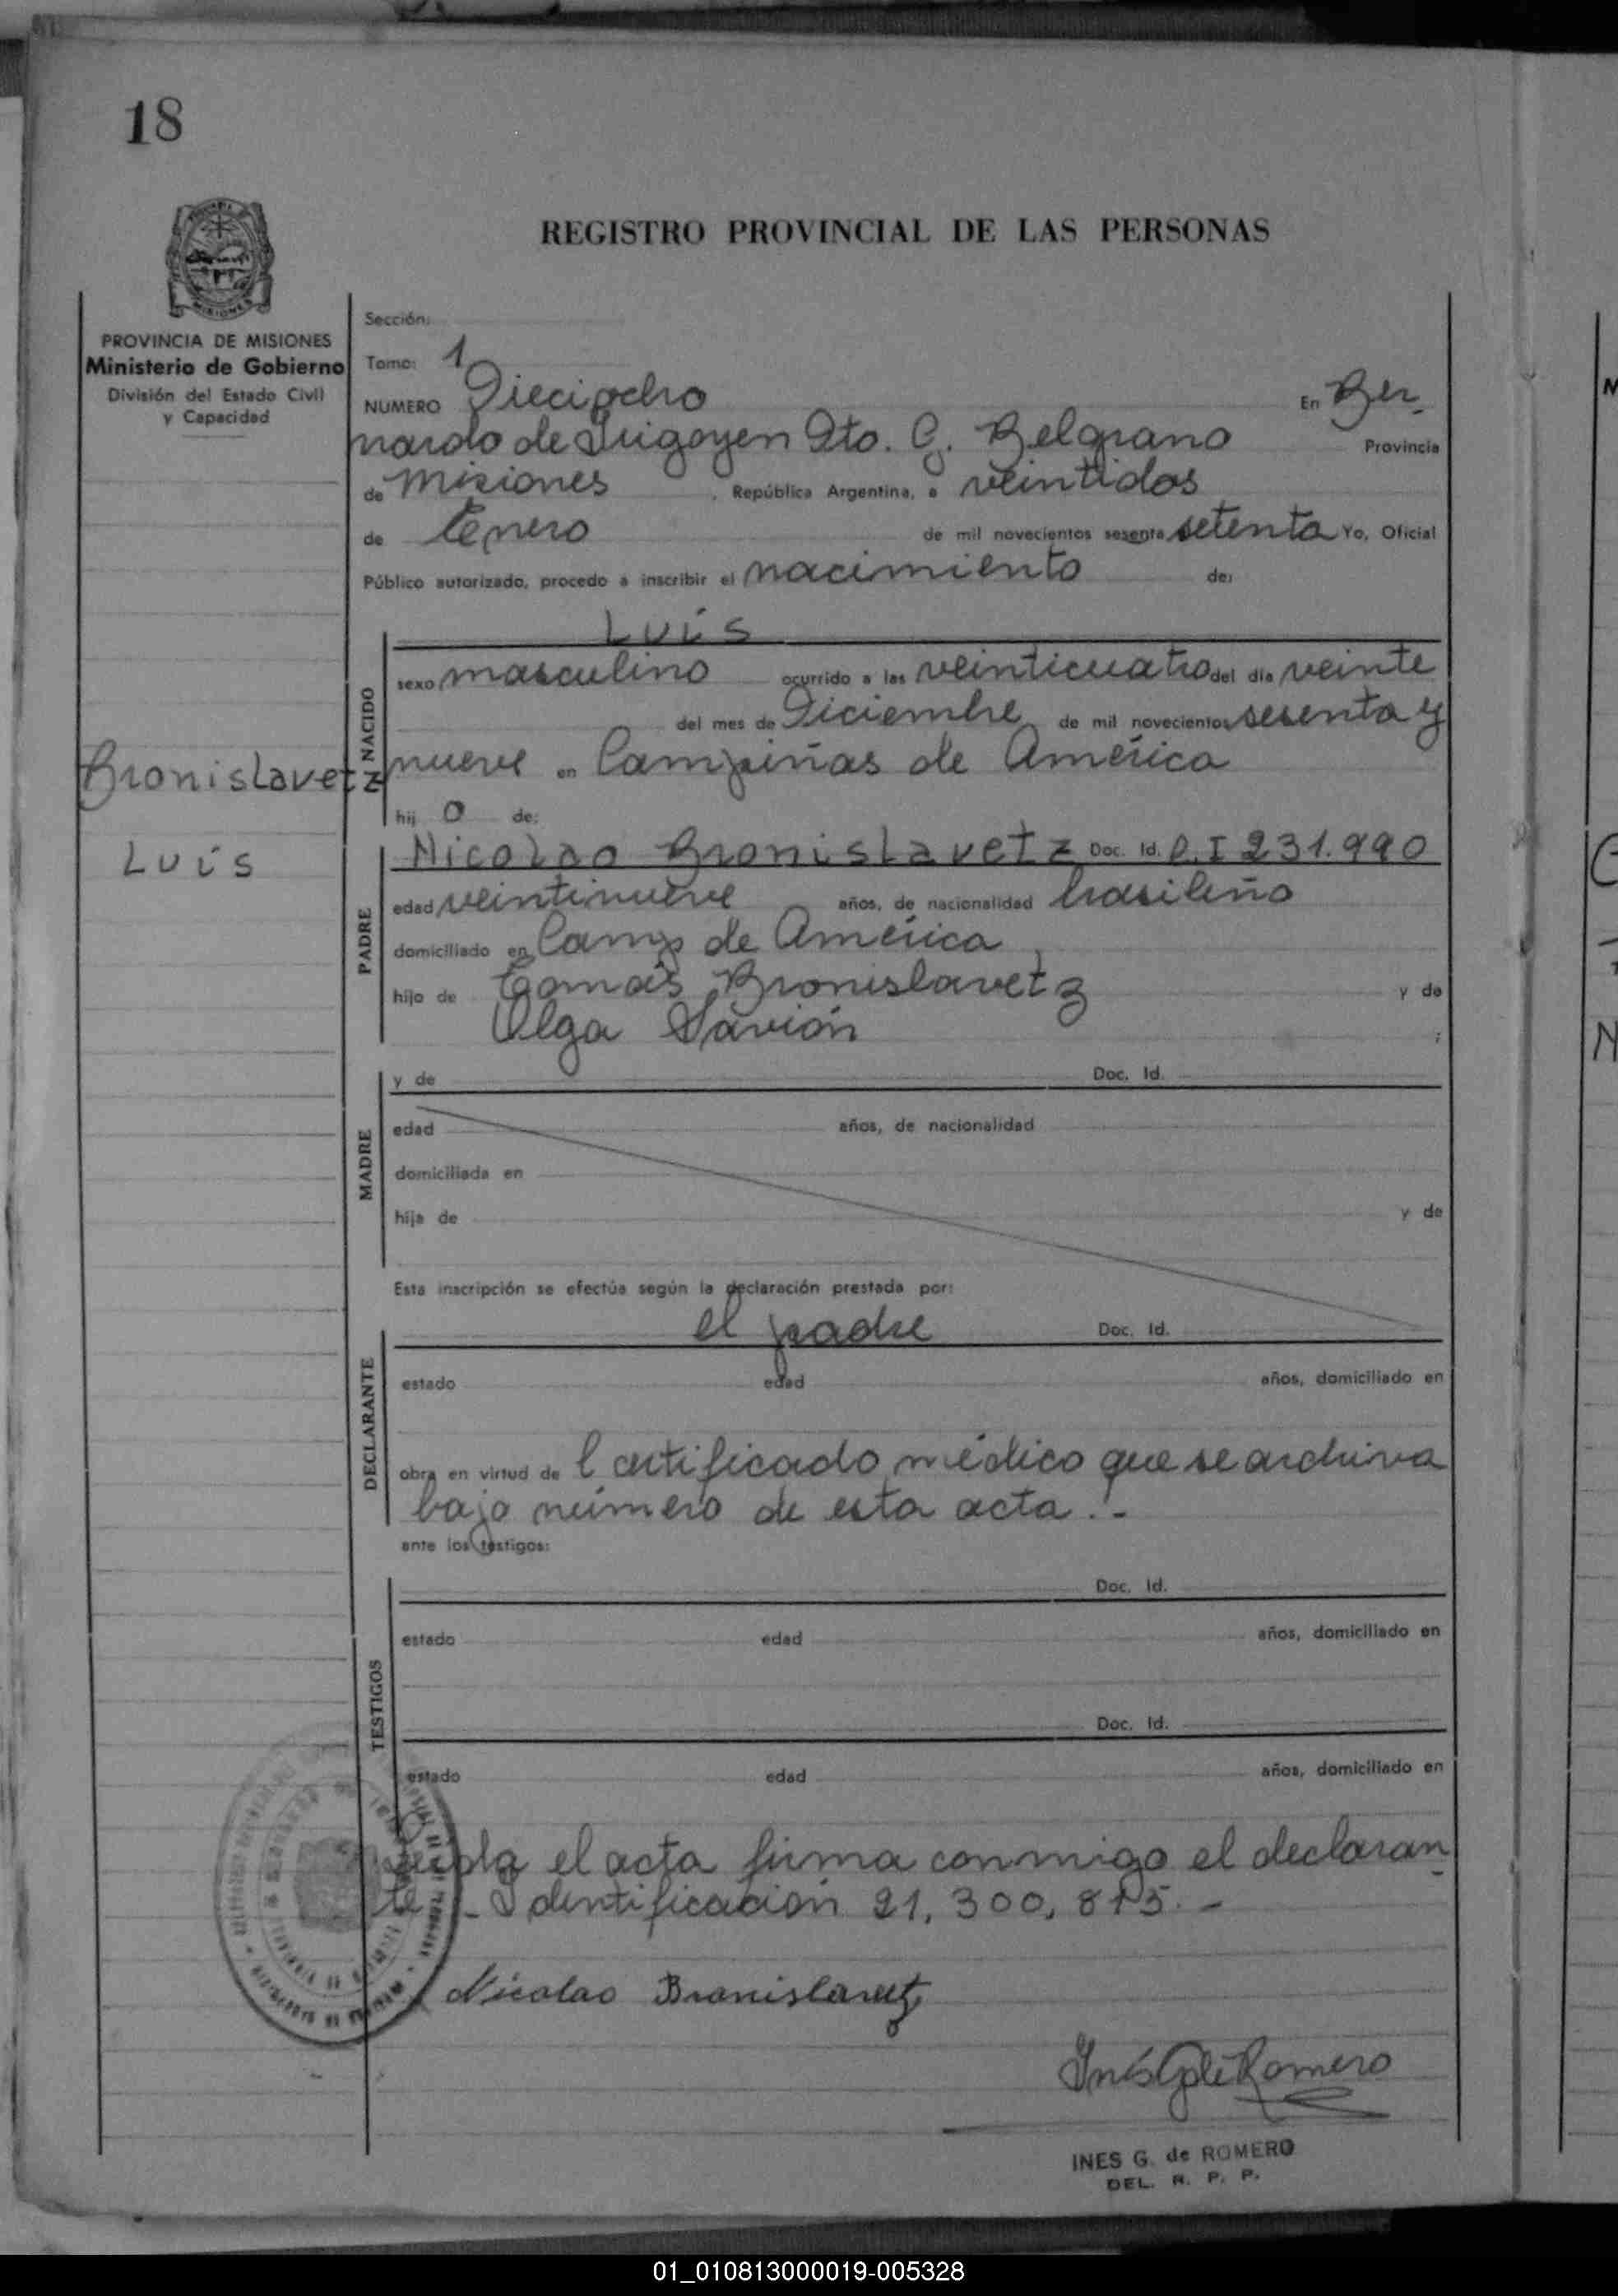 18
REGISTRO PROVINCIAL DE LAS PERSONAS
MISIONES
PROVINCIA DE MISIONES
Ministerio de Gobierno
División del Estado Civil
y Capacidad
Sección:
Tomo: 1
NUMERO Dieciocho En Ber-
nardo de Irigoyen Dto. G. Belgrano Provincia
de Misiones, República Argentina, a veintidos
de Enero de mil novecientos sesenta setenta Yo, Oficial
Público autorizado, procedo a inscribir el nacimiento de:
Luís
NACIDO
sexo masculino ocurrido a las veinticuatro del día veinte
del mes de Diciembre de mil novecientos sesenta y
nueve en Campiñas de América
hij o de:
Bronislavetz
Luís
PADRE
Nicolao Bronislavetz Doc. Id. C.I 231.990
edad veintinueve años, de nacionalidad brasileño
domiciliado en Camp de América
hijo de Tomás Bronislavetz y de
Olga Savión ;
MADRE
y de Doc. Id.
edad años, de nacionalidad
domiciliada en
hija de y de
Esta inscripción se efectúa según la declaración prestada por:
DECLARANTE
el padre Doc. Id.
estado edad años, domiciliado en
obra en virtud de l certificado médico que se archiva
bajo número de esta acta.-
ante los testigos:
TESTIGOS
Doc. Id.
estado edad años, domiciliado en
Doc. Id.
estado edad años, domiciliado en
Leída el acta firma conmigo el declaran-
te - Identificación 21,300,815.-
Nicolao Bronislavetz
Inés G de Romero
INES G. de ROMERO
DEL. R. P. P.
01_010813000019-005328